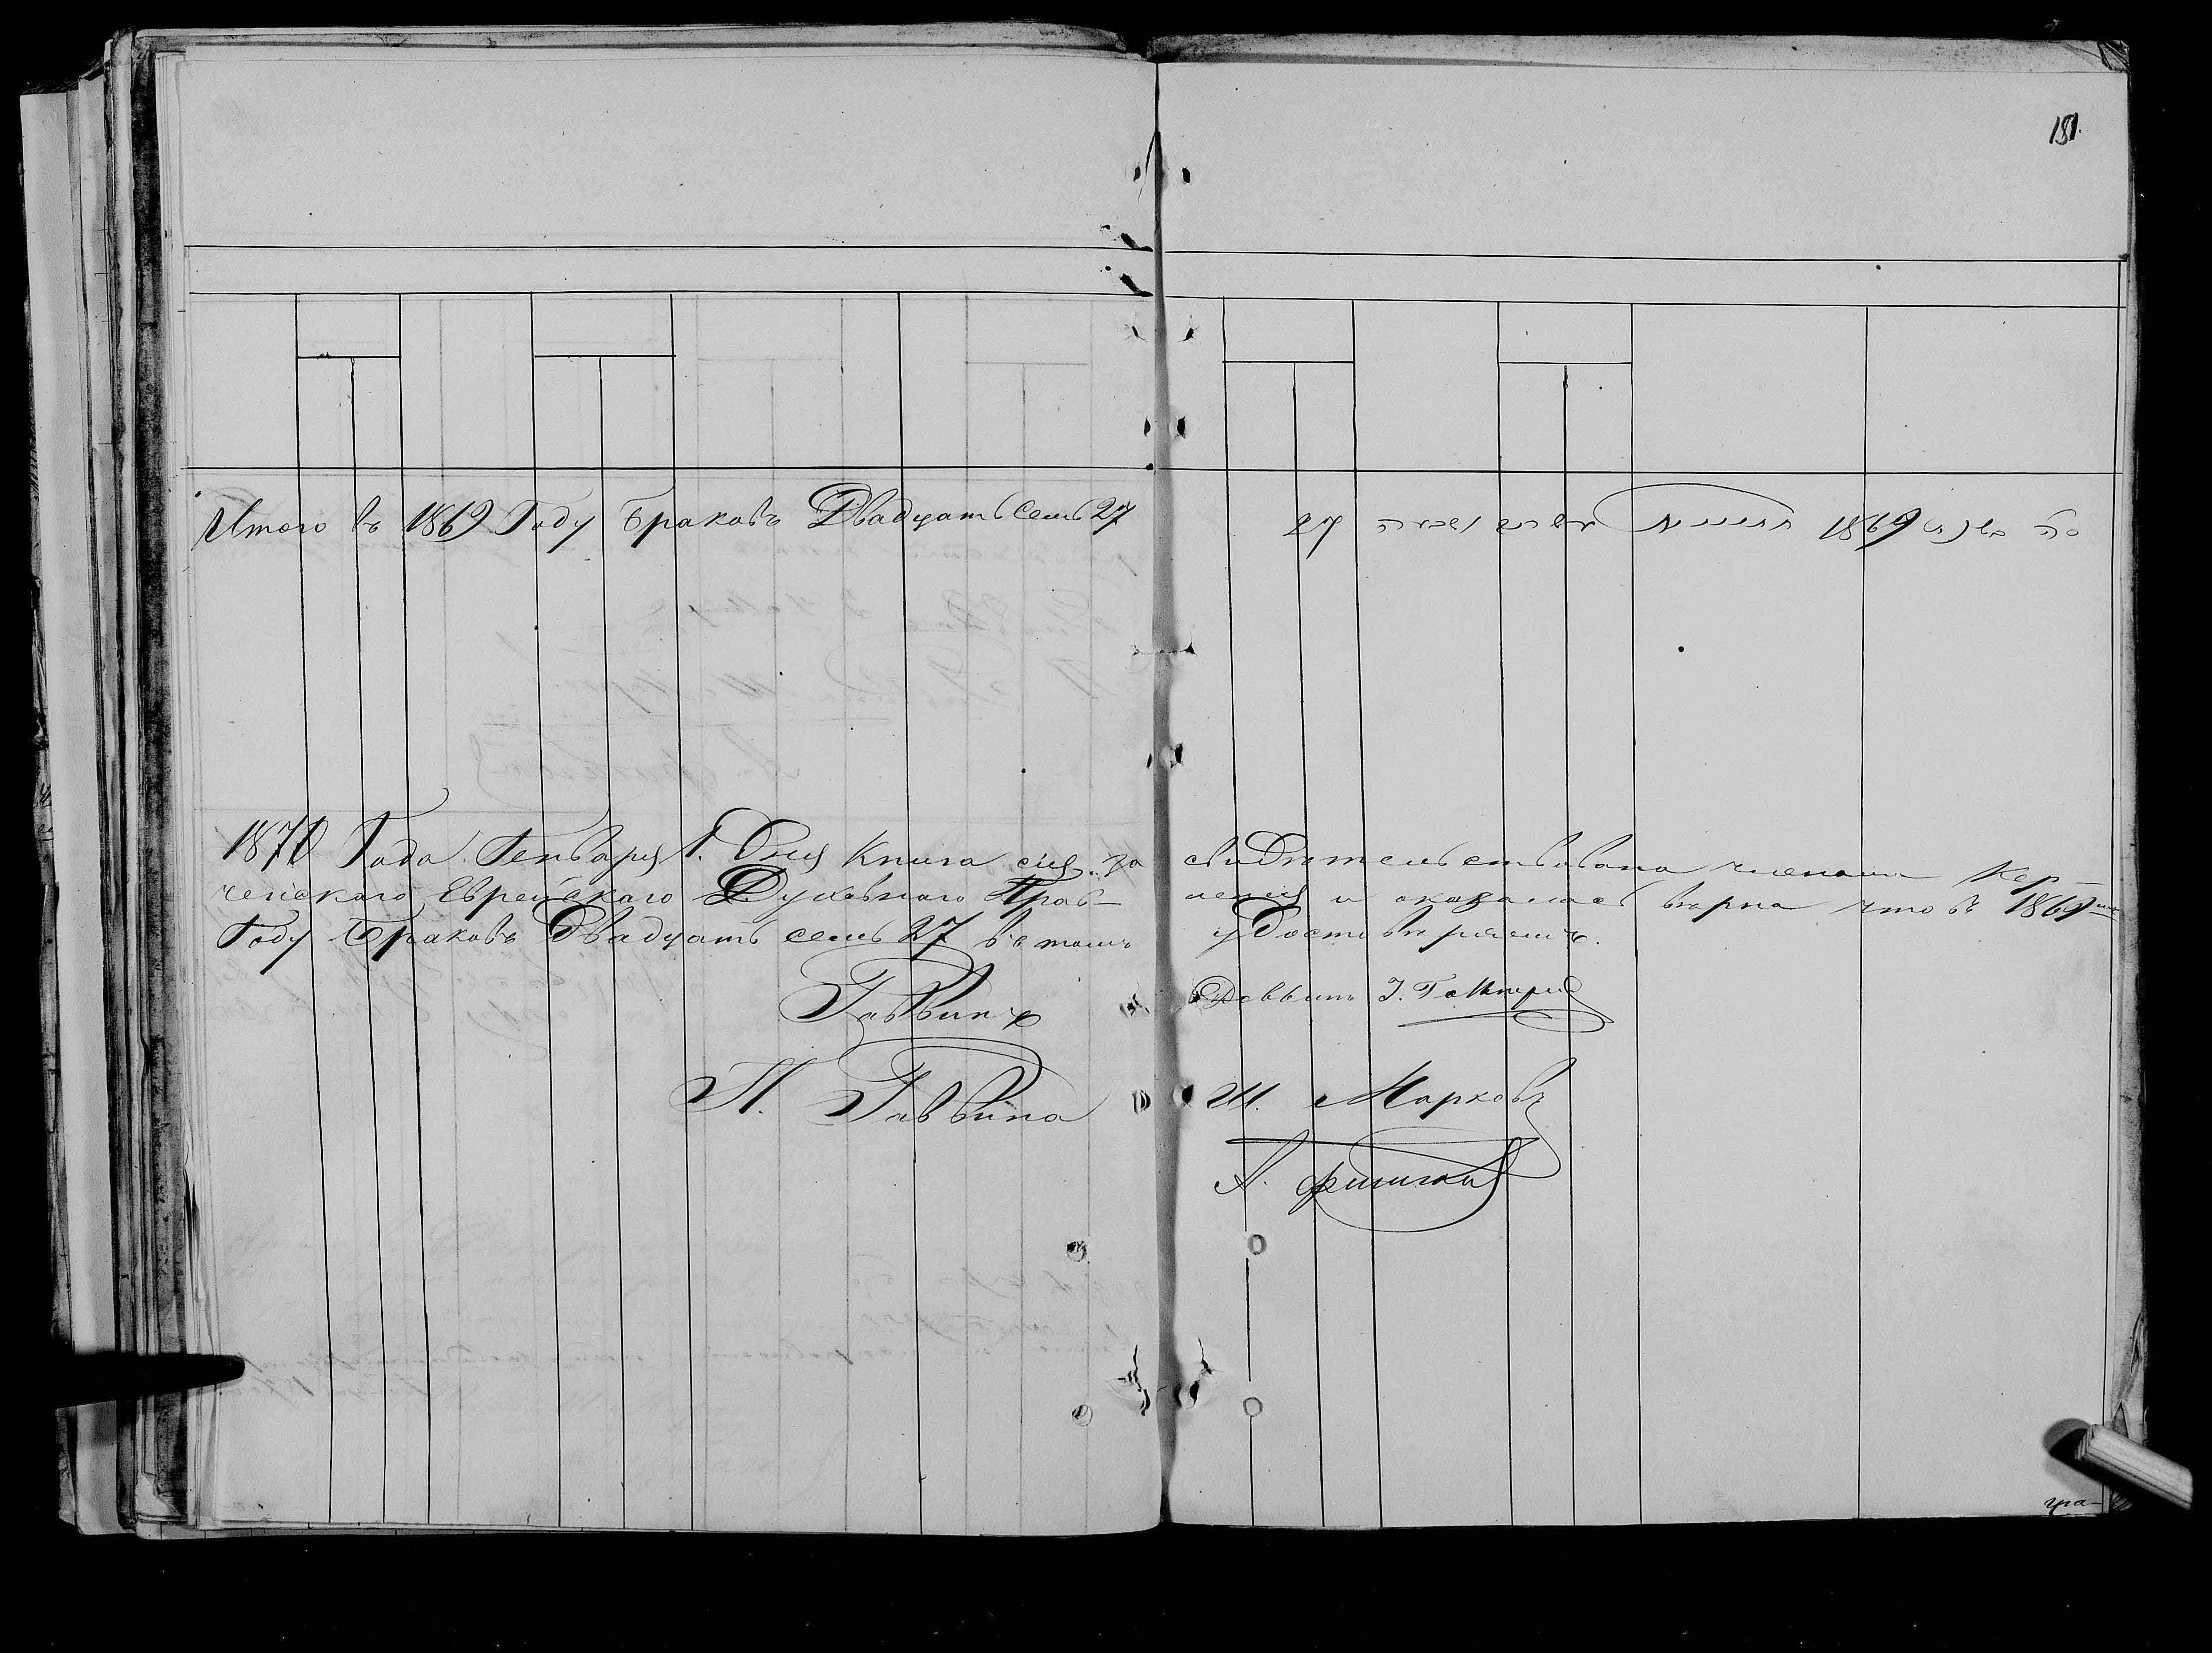 181.
Итого въ 1869 Году Браковъ Двадцать Семь 27
27 1869
1870 Года Генваря 1. Дня Книга сія за свидѣтельствована членами Кер-
ченскаго Еврейскаго Духовнаго Прав- ленія и оказалась вѣрна что въ 1869мъ
Году Браковъ Двадцать семь 27 въ томъ удостовѣряемъ.
Раввинъ
Раввинъ І.
Н. Раввина
Ш. Марковъ
А.
гра-